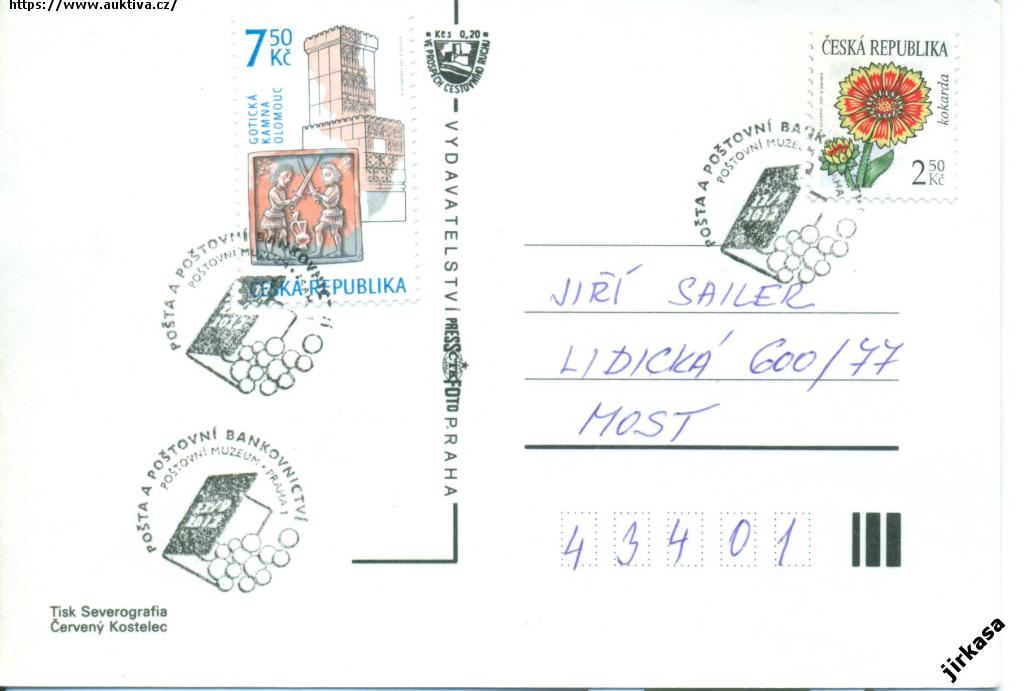 https://www.auktiva.cz/
750 Kč
GOTICKÁ
KAMNA
OLOMOUC
ČESKÁ REPUBLIKA
Kčs 0,20
VE PROSPĚCH CESTOVNÍHO RUCHU
ČESKÁ REPUBLIKA
kokarda
2 50 Kč
POŠTA A POŠTOVNÍ BANKOVNICTVÍ
POŠTOVNÍ MUZEUM • PRAHA 1
POŠTA A POŠTOVNÍ BANKOVNICTVÍ
POŠTOVNÍ MUZEUM
POŠTA A POŠTOVNÍ BANKOVNICTVÍ
POŠTOVNÍ MUZEUM • PRAHA 1
VYDAVATELSTVÍ PRESSFOTO PRAHA
ČTK
JIŘÍ SAILER
LIDICKÁ 600/77
MOST
43401
Tisk Severografia
Červený Kostelec
jirkasa